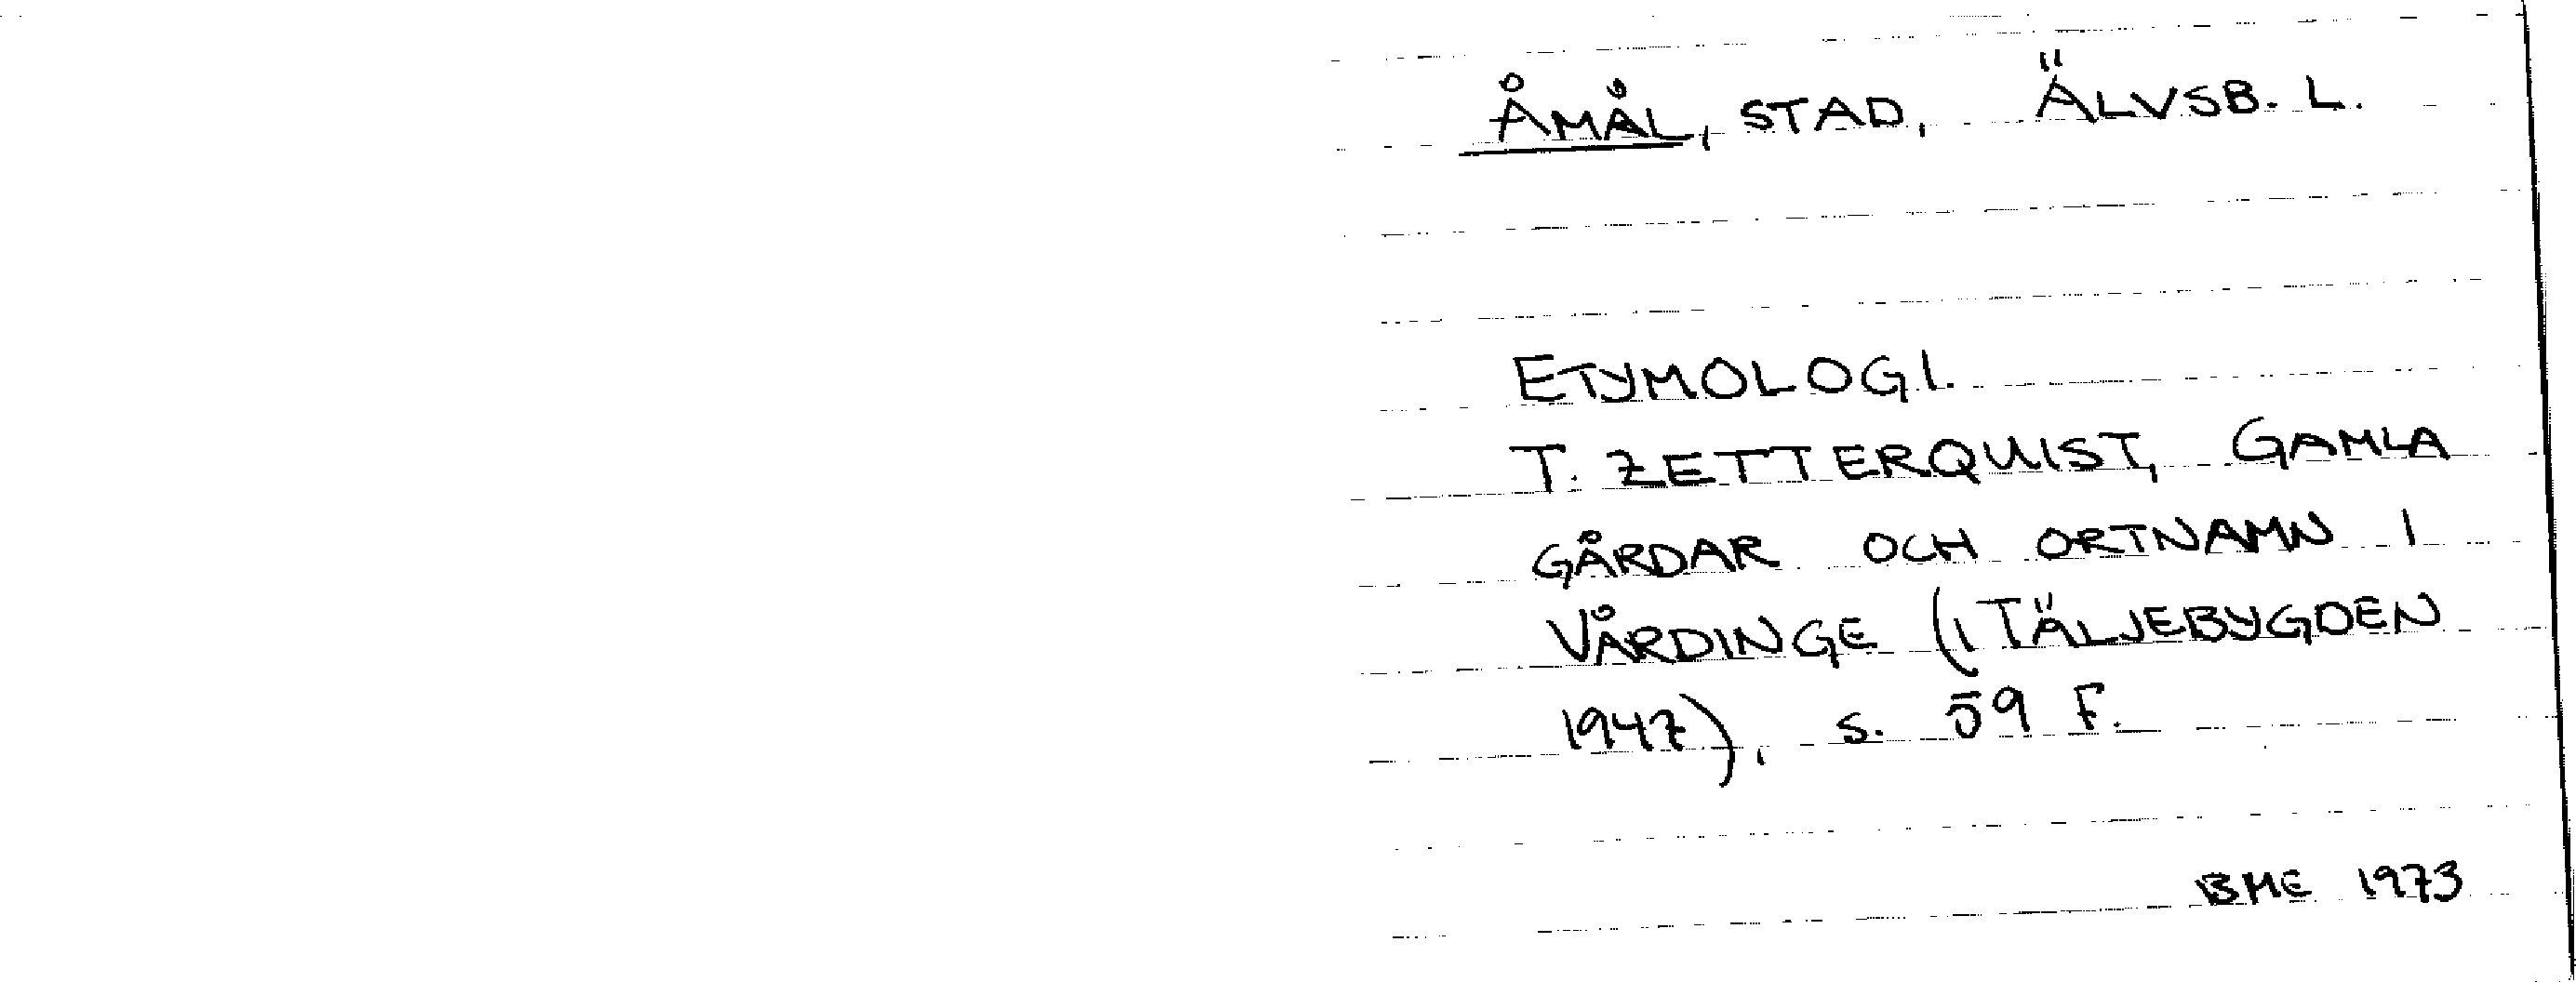 ÅMÅL, STAD, ÄLVSB. L.
ETYMOLOGI.
T. ZETTERQUIST, GAMLA
GÅRDAR OCH ORTNAMN I
VÅRDINGE (I TÄLJEBYGDEN
1947), S. 59 F.
BME 1973